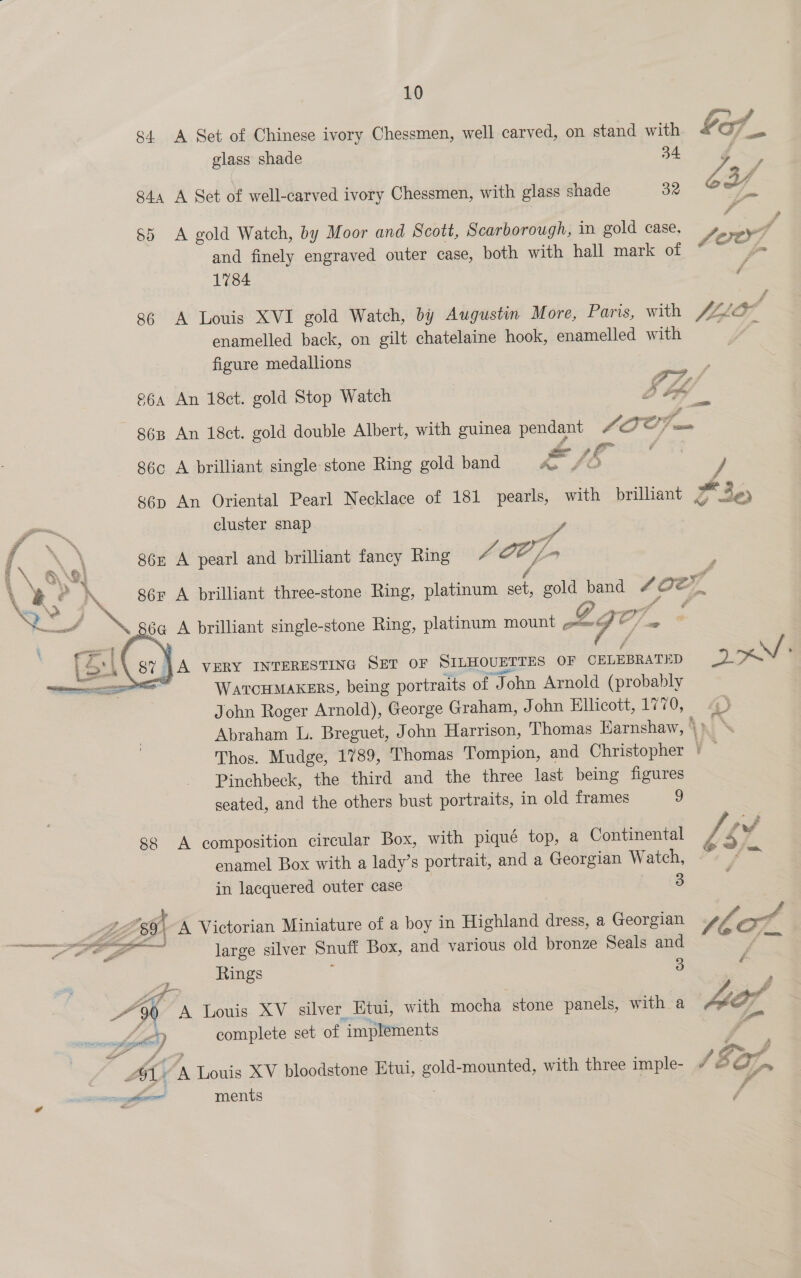 10
84 A Set of Chinese ivory Chessmen, well carved, on stand with
glass shade 34
84A A Set of well-carved ivory Chessmen, with glass shade 32
85 A gold Watch, by Moor and Scott, Scarborough, in gold case,
and finely engraved outer case, both with hall mark of
1784
86 A Louis XVI gold Watch, by Augustin More, Paris, with
enamelled back, on gilt chatelaine hook, enamelled with
figure medallions
86A An 18ct. gold Stop Watch
86B An 18ct. gold double Albert, with guinea pendant
86C A brilliant single stone Ring gold band
86D An Oriental Pearl Necklace of 181 pearls, with brilliant
cluster snap
86E A pearl and brilliant fancy Ring
86F A brilliant three-stone Ring, platinum set, gold band
86G A brilliant single-stone Ring, platinum mount
87 A VERY INTERESTING SET OF SILHOUETTES OF CELEBRATED
WATCHMAKERS, being portraits of John Arnold (probably
John Roger Arnold), George Graham, John Ellicott, 1770,
Abraham L. Breguet, John Harrison, Thomas Earnshaw,
Thos. Mudge, 1789, Thomas Tompion, and Christopher
Pinchbeck, the third and the three last being figures
seated, and the others bust portraits, in old frames 9
88 A composition circular Box, with piqué top, a Continental
enamel Box with a lady's portrait, and a Georgian Watch,
in lacquered outer case 3
89 A Victorian Miniature of a boy in Highland dress, a Georgian
large silver Snuff Box, and various old bronze Seals and
Rings 3
90 A Louis XV silver Etui, with mocha stone panels, with a
complete set of implements
91 A Louis XV bloodstone Etui, gold-mounted, with three imple-
ments